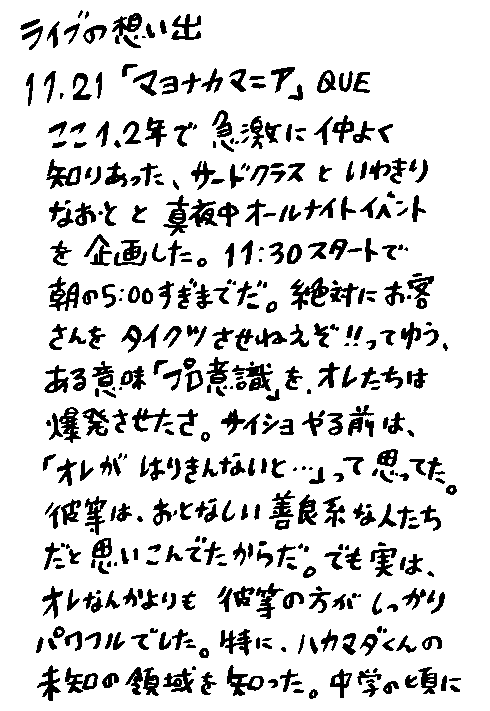 ライブの想い出
11.21「マヨナカマニア」QUE
ここ1、2年で 急激に仲よく
知りあった、サードクラスといわきり
なおとと真夜中オールナイトイベント
を企画した。11:30スタートで
朝の5:00すぎまでだ。絶対にお客
さんをタイクツさせねえぞ!!ってゆう、
ある意味「プロ意識」を、オレたちは
爆発させたさ。サイショやる前は、
「オレが はりきんないと…」って思ってた。
彼等は、おとなしい善良系な人たち
だと思いこんでたからだ。でも実は、
オレなんかよりも 彼等の方がしっかり
パワフルでした。特に、ハカマダくんの
未知の領域を知った。中学の頃に